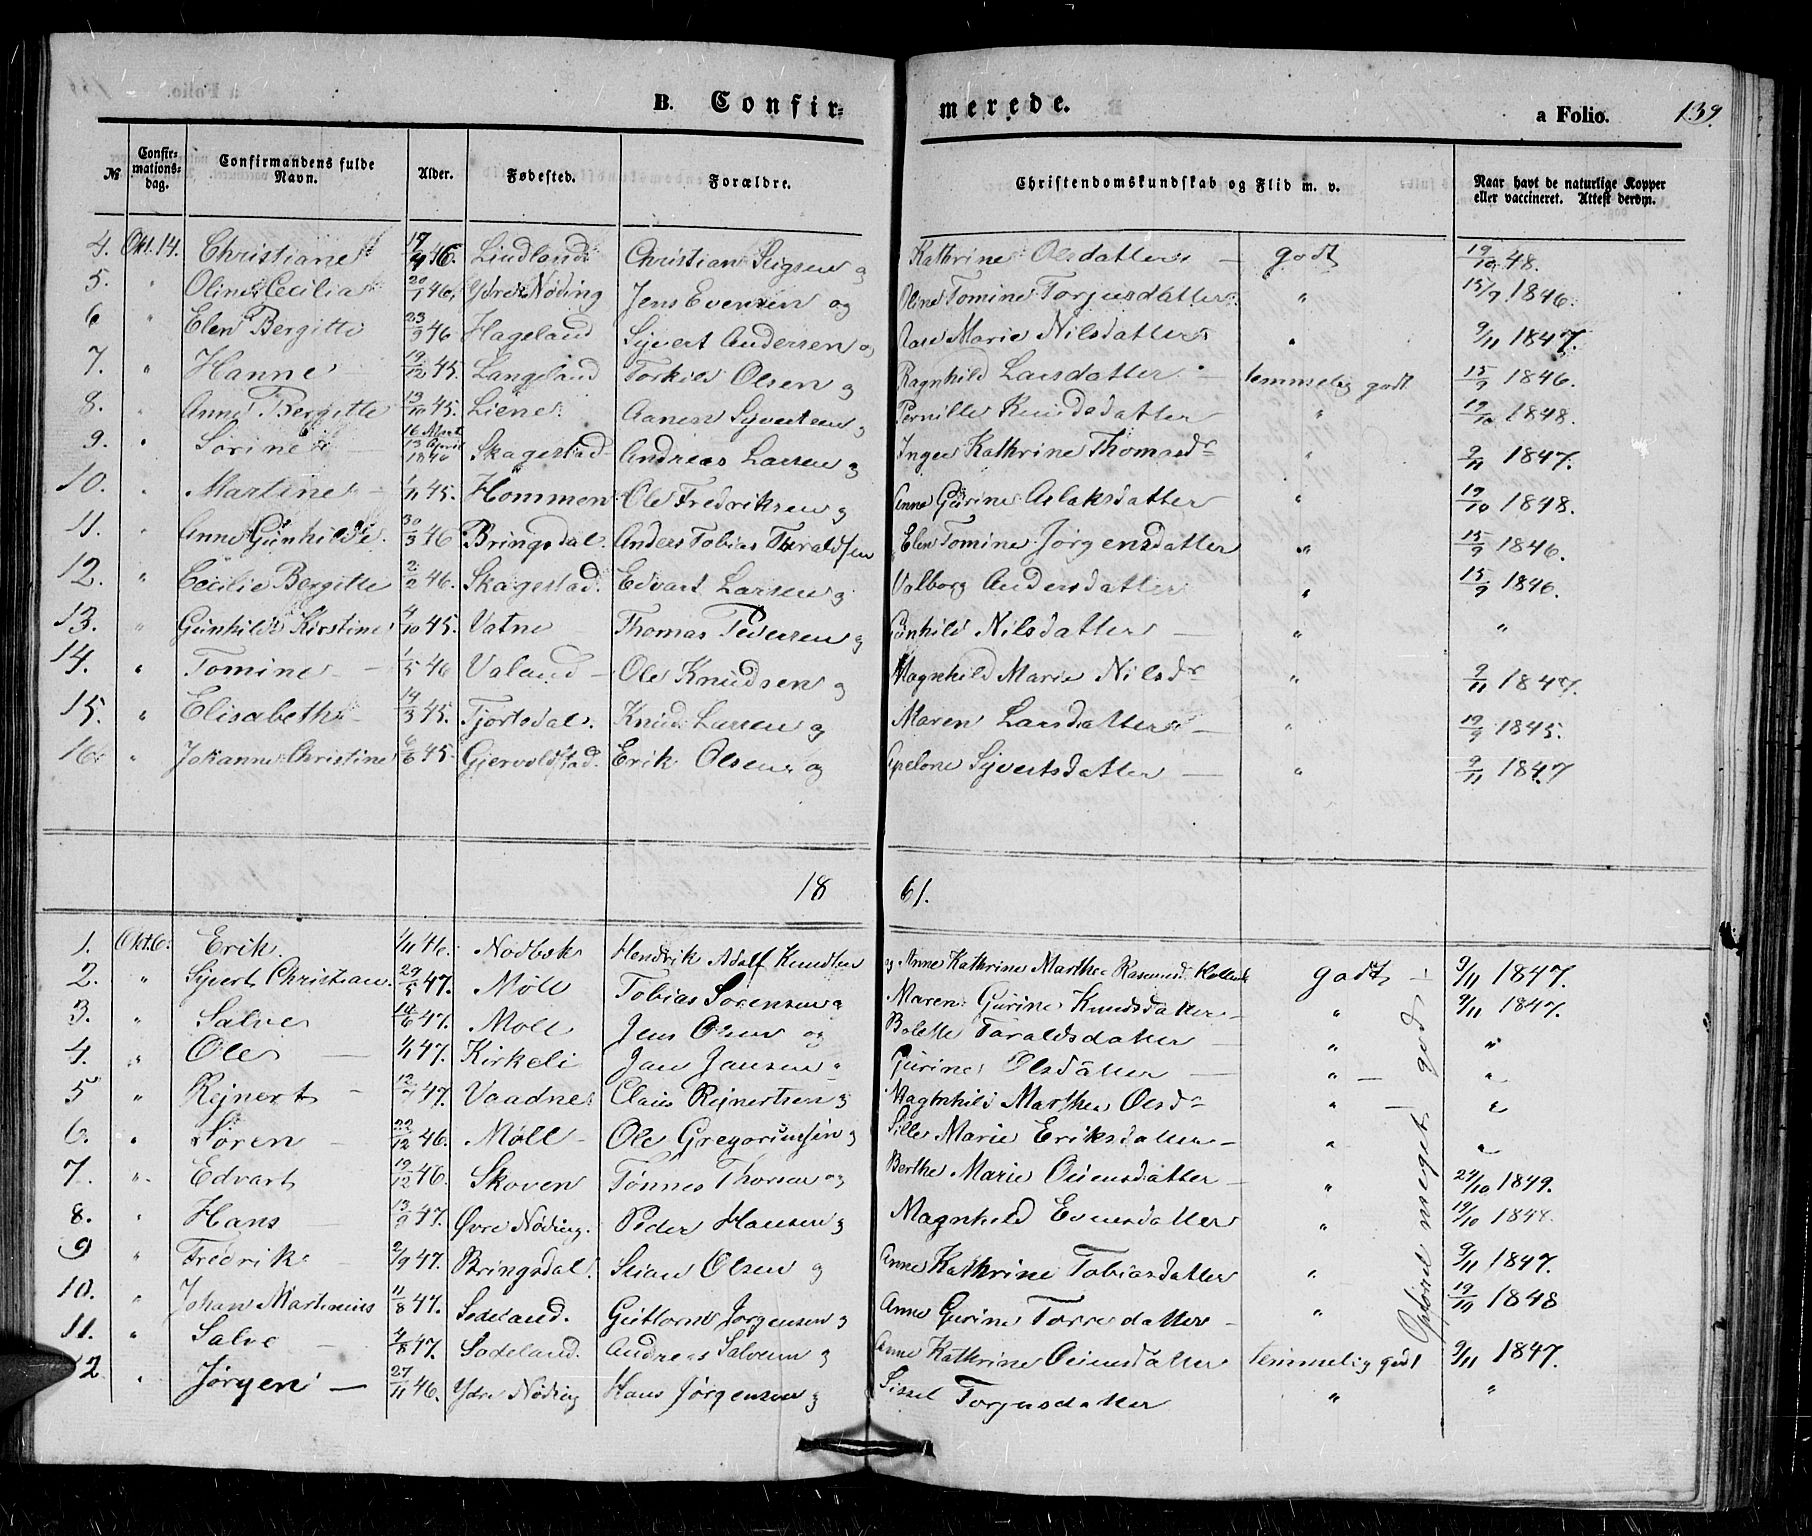 B. Confir-merede. a Folio. 139.
№ Confirmationsdag. Confirmandens fulde Navn. Alder. Fødested. Forældre. Christendomskundskab og Flid m. v. Naar havt de naturlige Kopper eller vaccineret. Attest derom.
4. Okt. 14. Christiane 46. Lindland Christian Stigsen og Kathrine Olsdatter godt 19/10 48.
5. " Oline Cecilia 20/1 46, Ydre Nøding Jens Evensen og Oline Tomine Torjusdatter " 15/9 1846.
6 " Elen Bergitte 23/3 46 Hageland Syvert Andersen og Aase Marie Nilsdatter " 9/11 1847.
7. " Hanne 19/12 45. Langeland Torkild Olsen og Ragnhild Larsdatter temmelig godt 15/9 1846.
8. " Anne Bergitte 13/10 45. Liene Aanen Syvertsen og Pernille Knudsdatter " 19/10 1848.
9. " Sørine 16 Mart 13 April 1846 Skagestad Andreas Larsen og Inger Kathrine Thomasdr " 9/11 1847.
10. " Martine 1/11 45. Hommen Ole Fredriksen og Anne Gurine Aslaksdatter " 19/10 1848.
11. " Anne Gunhilde 30/3 46 Bringsdal. Anders Tobias Taraldsen Elen Tomine Jørgensdatter " 15/9 1846.
12. " Cecilie Bergitte 2/2 46. Skagestad. Edvart Larsen og Valborg Andersdatter " 15/9 1846.
13. " Gunhild Kirstine 4/10 45. Vatne Thomas Pedersen og Gunhild Nilsdatter " "
14. " Tomine 1/5 46 Valand Ole Knudsen og Magnhild Marie Nilsdr " 9/11 1847.
15. " Elisabeth 14/3 45. Tjortsdal. Knud Larsen og Maren Larsdatter " 19/9 1845.
16. " Johanne Christine 6/6 45. Gjervoldstad. Erik Olsen og Apelone Syvertsdatter " 9/11 1847
1861.
1. Okt. 6. Erik. 1/11 46. Nodbok Hendrik Adolf Knudsen og Anne Kathrine Marthea Rasmusd. godt 9/11 1847.
2. " Syvert Christian 29/5 47. Møll Tobias Sørensen og Maren Gurine Knudsdatter " 9/11 1847.
3. " Salve 47. Møll Jens Olsen og Bolette Taraldsdatter " "
4. " Ole 1/1 47. Kirkeli Jan Jansen " Gurine Olsdatter " "
5 " Rejnert 47. Vaadne Claus Rejnertsen og Magnhild Marthea Olsdr " "
6. " Søren 22/12 46. Møll Ole Gregoriussen og Sille Marie Eriksdatter " "
7. " Edvart 19/12 46. Skoven Tønnes Thorsen og Berthe Marie Evensdatter " 24/10 1849.
8. " Hans 13/9 47. Øvre Nøding. Peder Hansen og Magnhild Evensdatter " 19/10 1848.
9 " Fredrik 2/9 47. Bringsdal. Stian Olsen og Anne Kathrine Tobiasdatter " 9/11 1847.
10. " Johan Martinius 11/8 47. Sodeland. Guttorm Jørgensen og Anne Gurine Torresdatter " 19/10 1848
11. " Salve 4/8 47. Sodeland. Andreas Salvesen og Anne Kathrine Evensdatter temmelig godt 9/11 1847.
12 " Jørgen 27/11 46. Ydre Nøding Hans Jørgensen og Sissel Torjusdatter " "
Opførel meget god